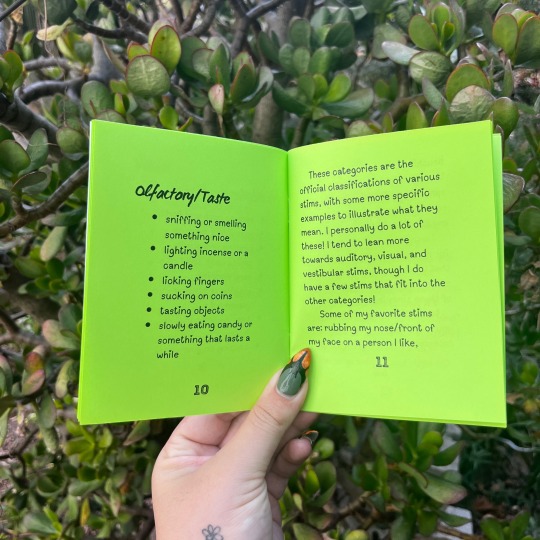 Olfactory/Taste
• sniffing or smelling
something nice
• lighting incense or a
candle
• licking fingers
• sucking on coins
• tasting objects
• slowly eating candy or
something that lasts a
while
10
These categories are the
official classifications of various
stims, with some more specific
examples to illustrate what they
mean. I personally do a lot of
these! I tend to lean more
towards auditory, visual, and
vestibular stims, though I do
have a few stims that fit into the
other categories!
Some of my favorite stims
are: rubbing my nose/front of
my face on a person I like,
11